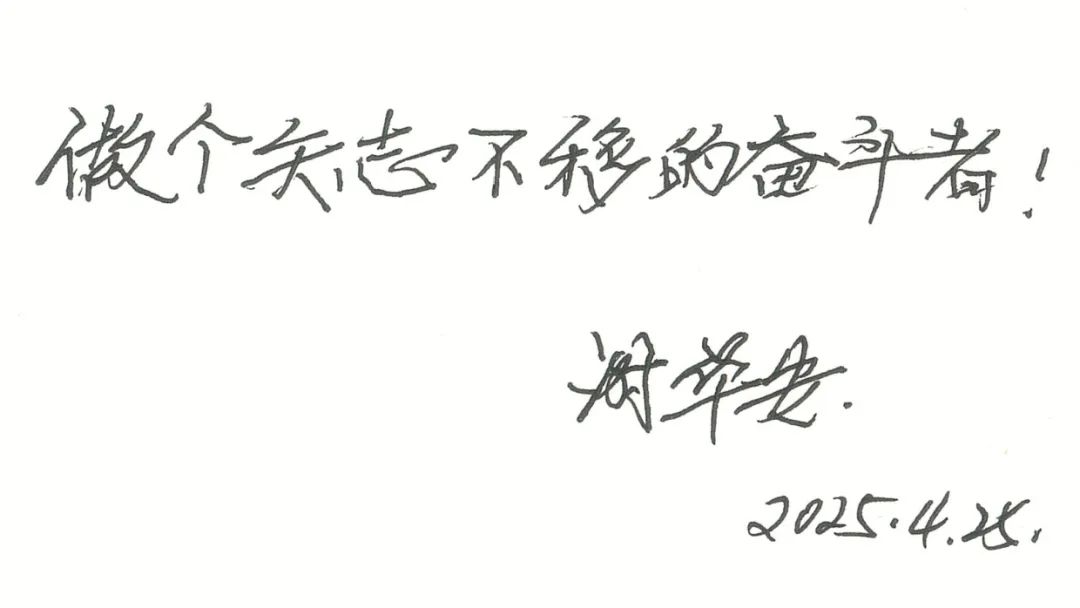 做个矢志不移的奋斗者!
谢华安.
2025.4.25.